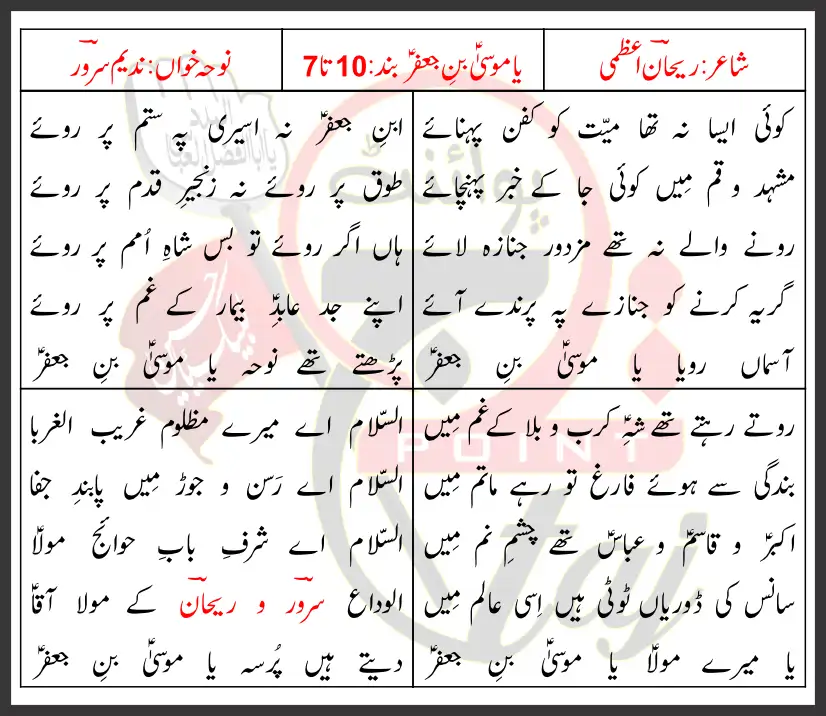 شاعر: ریحان اعظمی
یا موسیٰؑ بنِ جعفرؑ بند: 10 تا 7
نوحہ خواں: ندیم سرور
کوئی ایسا نہ تھا میّت کو کفن پہنائے
مشہد و قم مِیں کوئی جا کے خبر پہنچائے
رونے والے نہ تھے مزدور جنازہ لائے
گریہ کرنے کو جنازے پہ پرندے آئے
آسماں رویا یا موسیٰؑ بنِ جعفرؑ
ابنِ جعفرؑ نہ اسیری پہ ستم پر روئے
طوق پر روئے نہ زنجیرِ قدم پر روئے
ہاں اگر روئے تو بس شاہِ اُمم پر روئے
اپنے جد عابدِؑ بیمار کے غم پر روئے
پڑھتے تھے نوحہ یا موسیٰؑ بنِ جعفرؑ
روتے رہتے تھے شہِؑ کرب و بلا کے غم مِیں
بندگی سے ہوئے فارغ تو رہے ماتم مِیں
اکبرؑ و قاسمؑ و عباسؑ تھے چشمِ نم مِیں
سانس کی ڈوریاں ٹوٹی ہیں اِسی عالم مِیں
یا میرے مولاؑ یا موسیٰؑ بنِ جعفرؑ
السّلام اے میرے مظلوم غریب الغربا
السّلام اے رَسن و جوڑ مِیں پابندِ جفا
السّلام اے شرفِ بابِ حوائج مولاؑ
الوداع سرور و ریحان کے مولا آقاؑ
دیتے ہیں پُرسہ یا موسیٰؑ بنِ جعفرؑ
پوائنٹ
POINT
taj